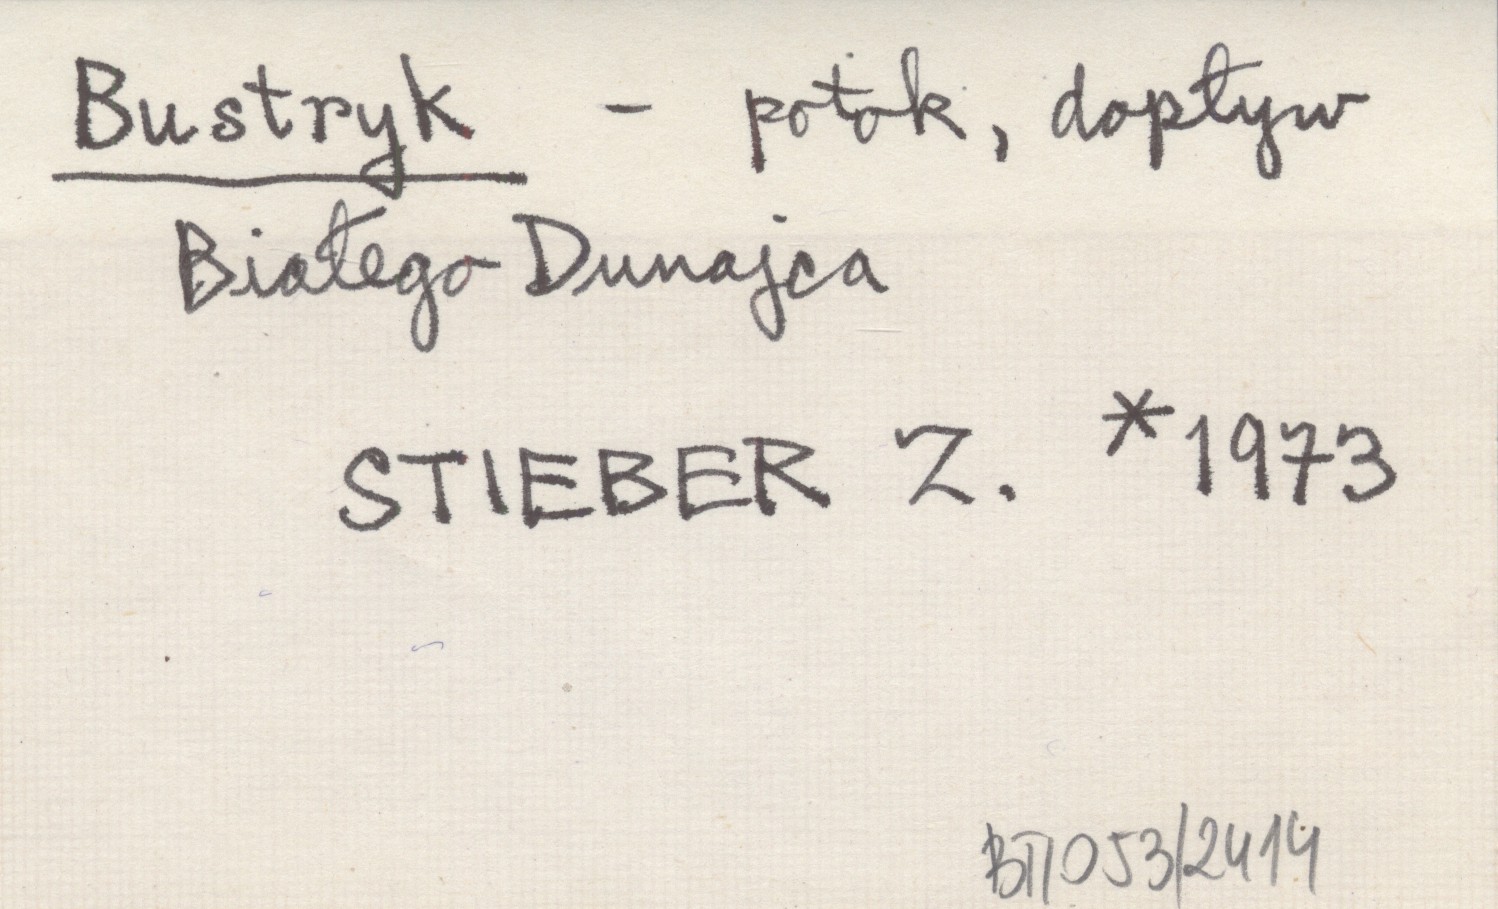 Bustryk - potok, dopływ
Białego Dunajca
STIEBER Z. *1973
BII/053/2414